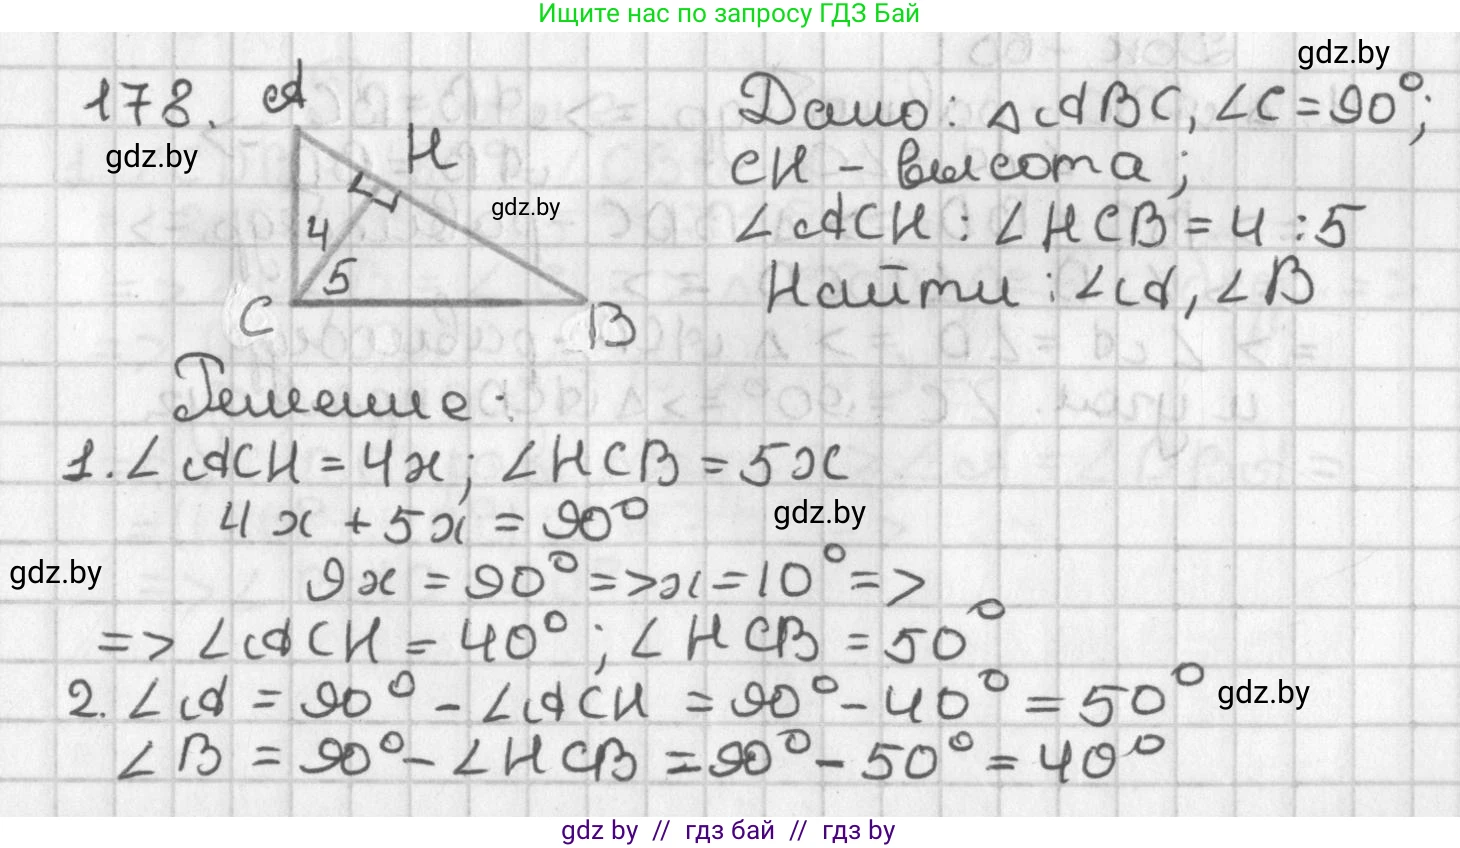 Ищите нас по запросу ГДЗ Бай
gdz.by
178.
A
H
4
5
C
B
gdz.by
gdz.by
Дано: △ABC, ∠C = 90°;
CH - высота;
∠ACH : ∠HCB = 4 : 5
Найти: ∠A, ∠B
Решение:
1. ∠ACH = 4x; ∠HCB = 5x
4x + 5x = 90°
gdz.by
gdz.by
9x = 90° => x = 10° =>
=> ∠ACH = 40°; ∠HCB = 50°
2. ∠A = 90° - ∠ACH = 90° - 40° = 50°
gdz.by
∠B = 90° - ∠HCB = 90° - 50° = 40°
gdz by // гдз бай // гдз by